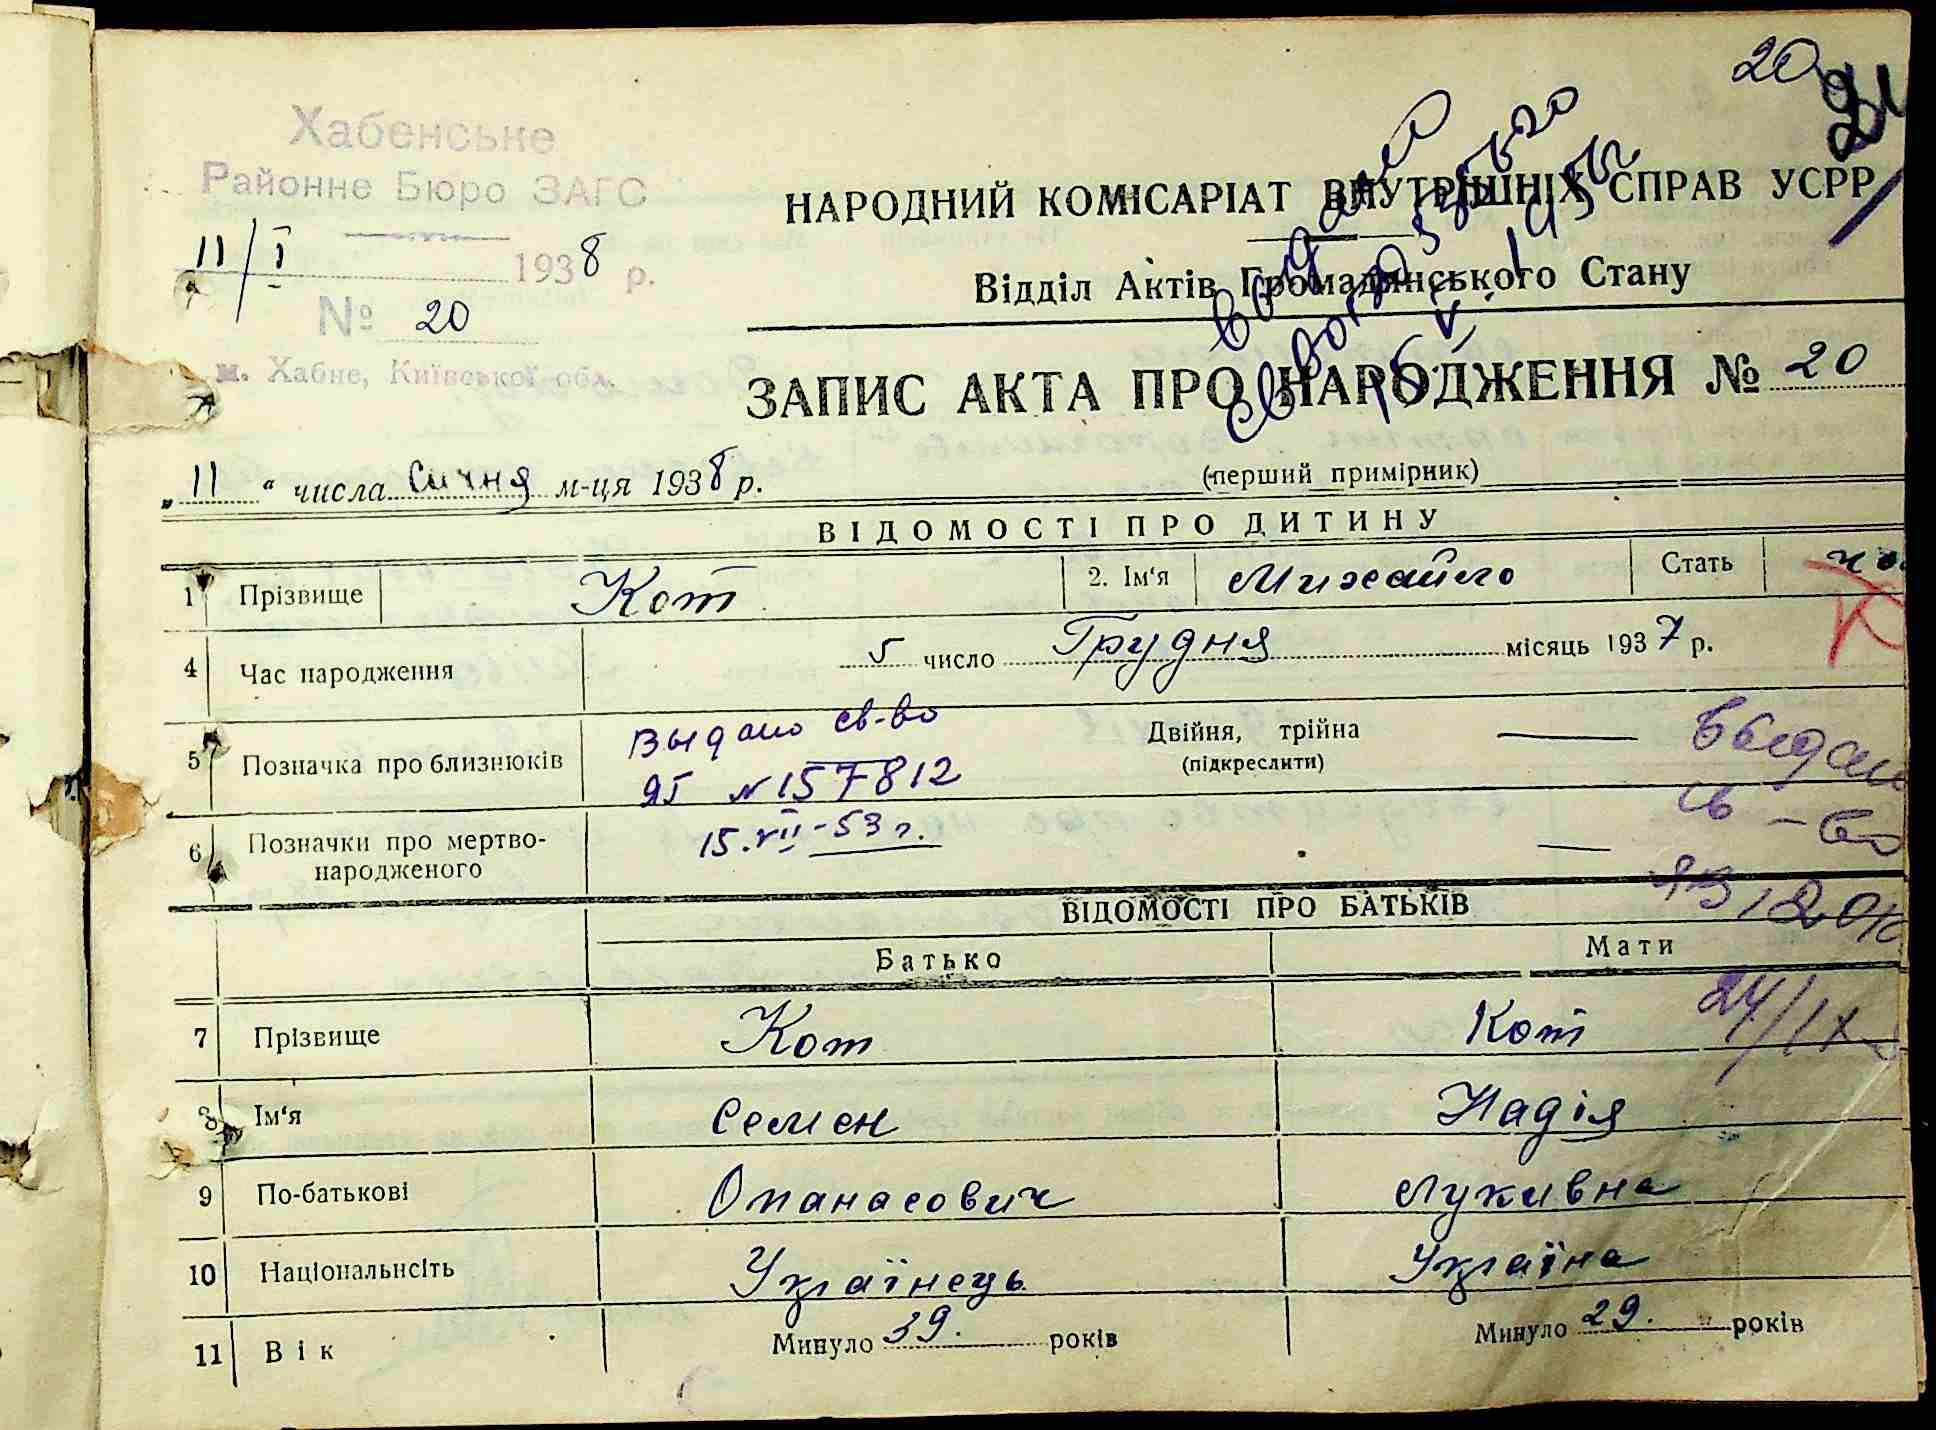 20
Хабенське
Районне Бюро ЗАГС
11/I 1938 р.
№ 20
м. Хабне, Київської обл.
НАРОДНИЙ КОМІСАРІАТ ВНУТРІШНІХ СПРАВ УСРР
Відділ Актів Громадянського Стану
ЗАПИС АКТА ПРО НАРОДЖЕННЯ № 20
„ 11 “ числа Січня м-ця 1938 р.
(перший примірник)
ВІДОМОСТІ ПРО ДИТИНУ
1 Прізвище Кот 2. Ім‘я Михайло Стать
4 Час народження 5 число Грудня місяць 1937 р.
5 Позначка про близнюків Двійня, трійна
(підкреслити)
Выдано св-во
ЯГ №157812
15.VII-53 г.
Выдано
св-во
24/IX
6 Позначки про мертво-
народженого
ВІДОМОСТІ ПРО БАТЬКІВ
Батько Мати
7 Прізвище Кот Кот
8 Ім‘я Семен Надія
9 По-батькові Опанасович Лукивна
10 Національнсіть Українець Україна
11 Вік Минуло 39. років Минуло 29. років